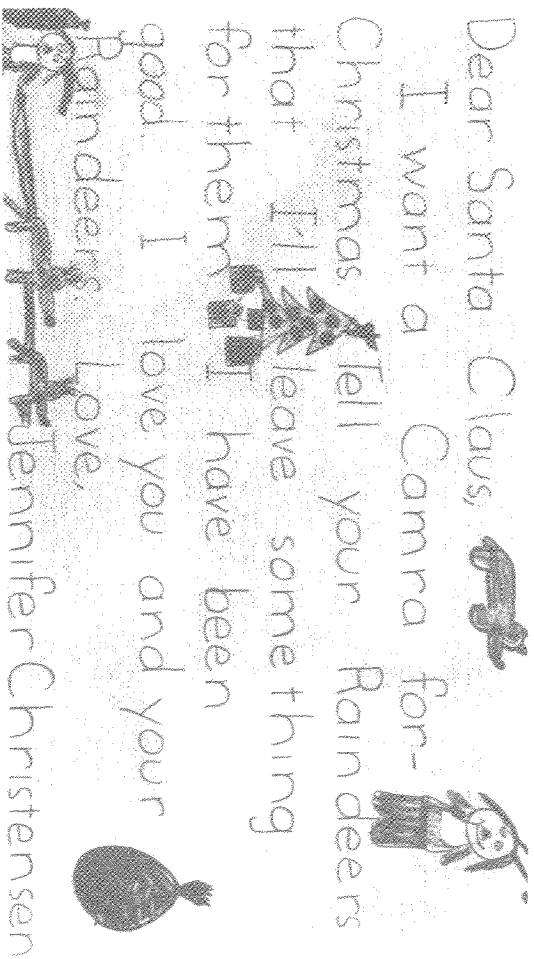 Dear Santa Claus,
I want a Camra for-
Christmas. Tell your Raindeers
that I'll leave something
for them I have been
good. I love you and your
Raindeers. Love,
Jennifer Christensen